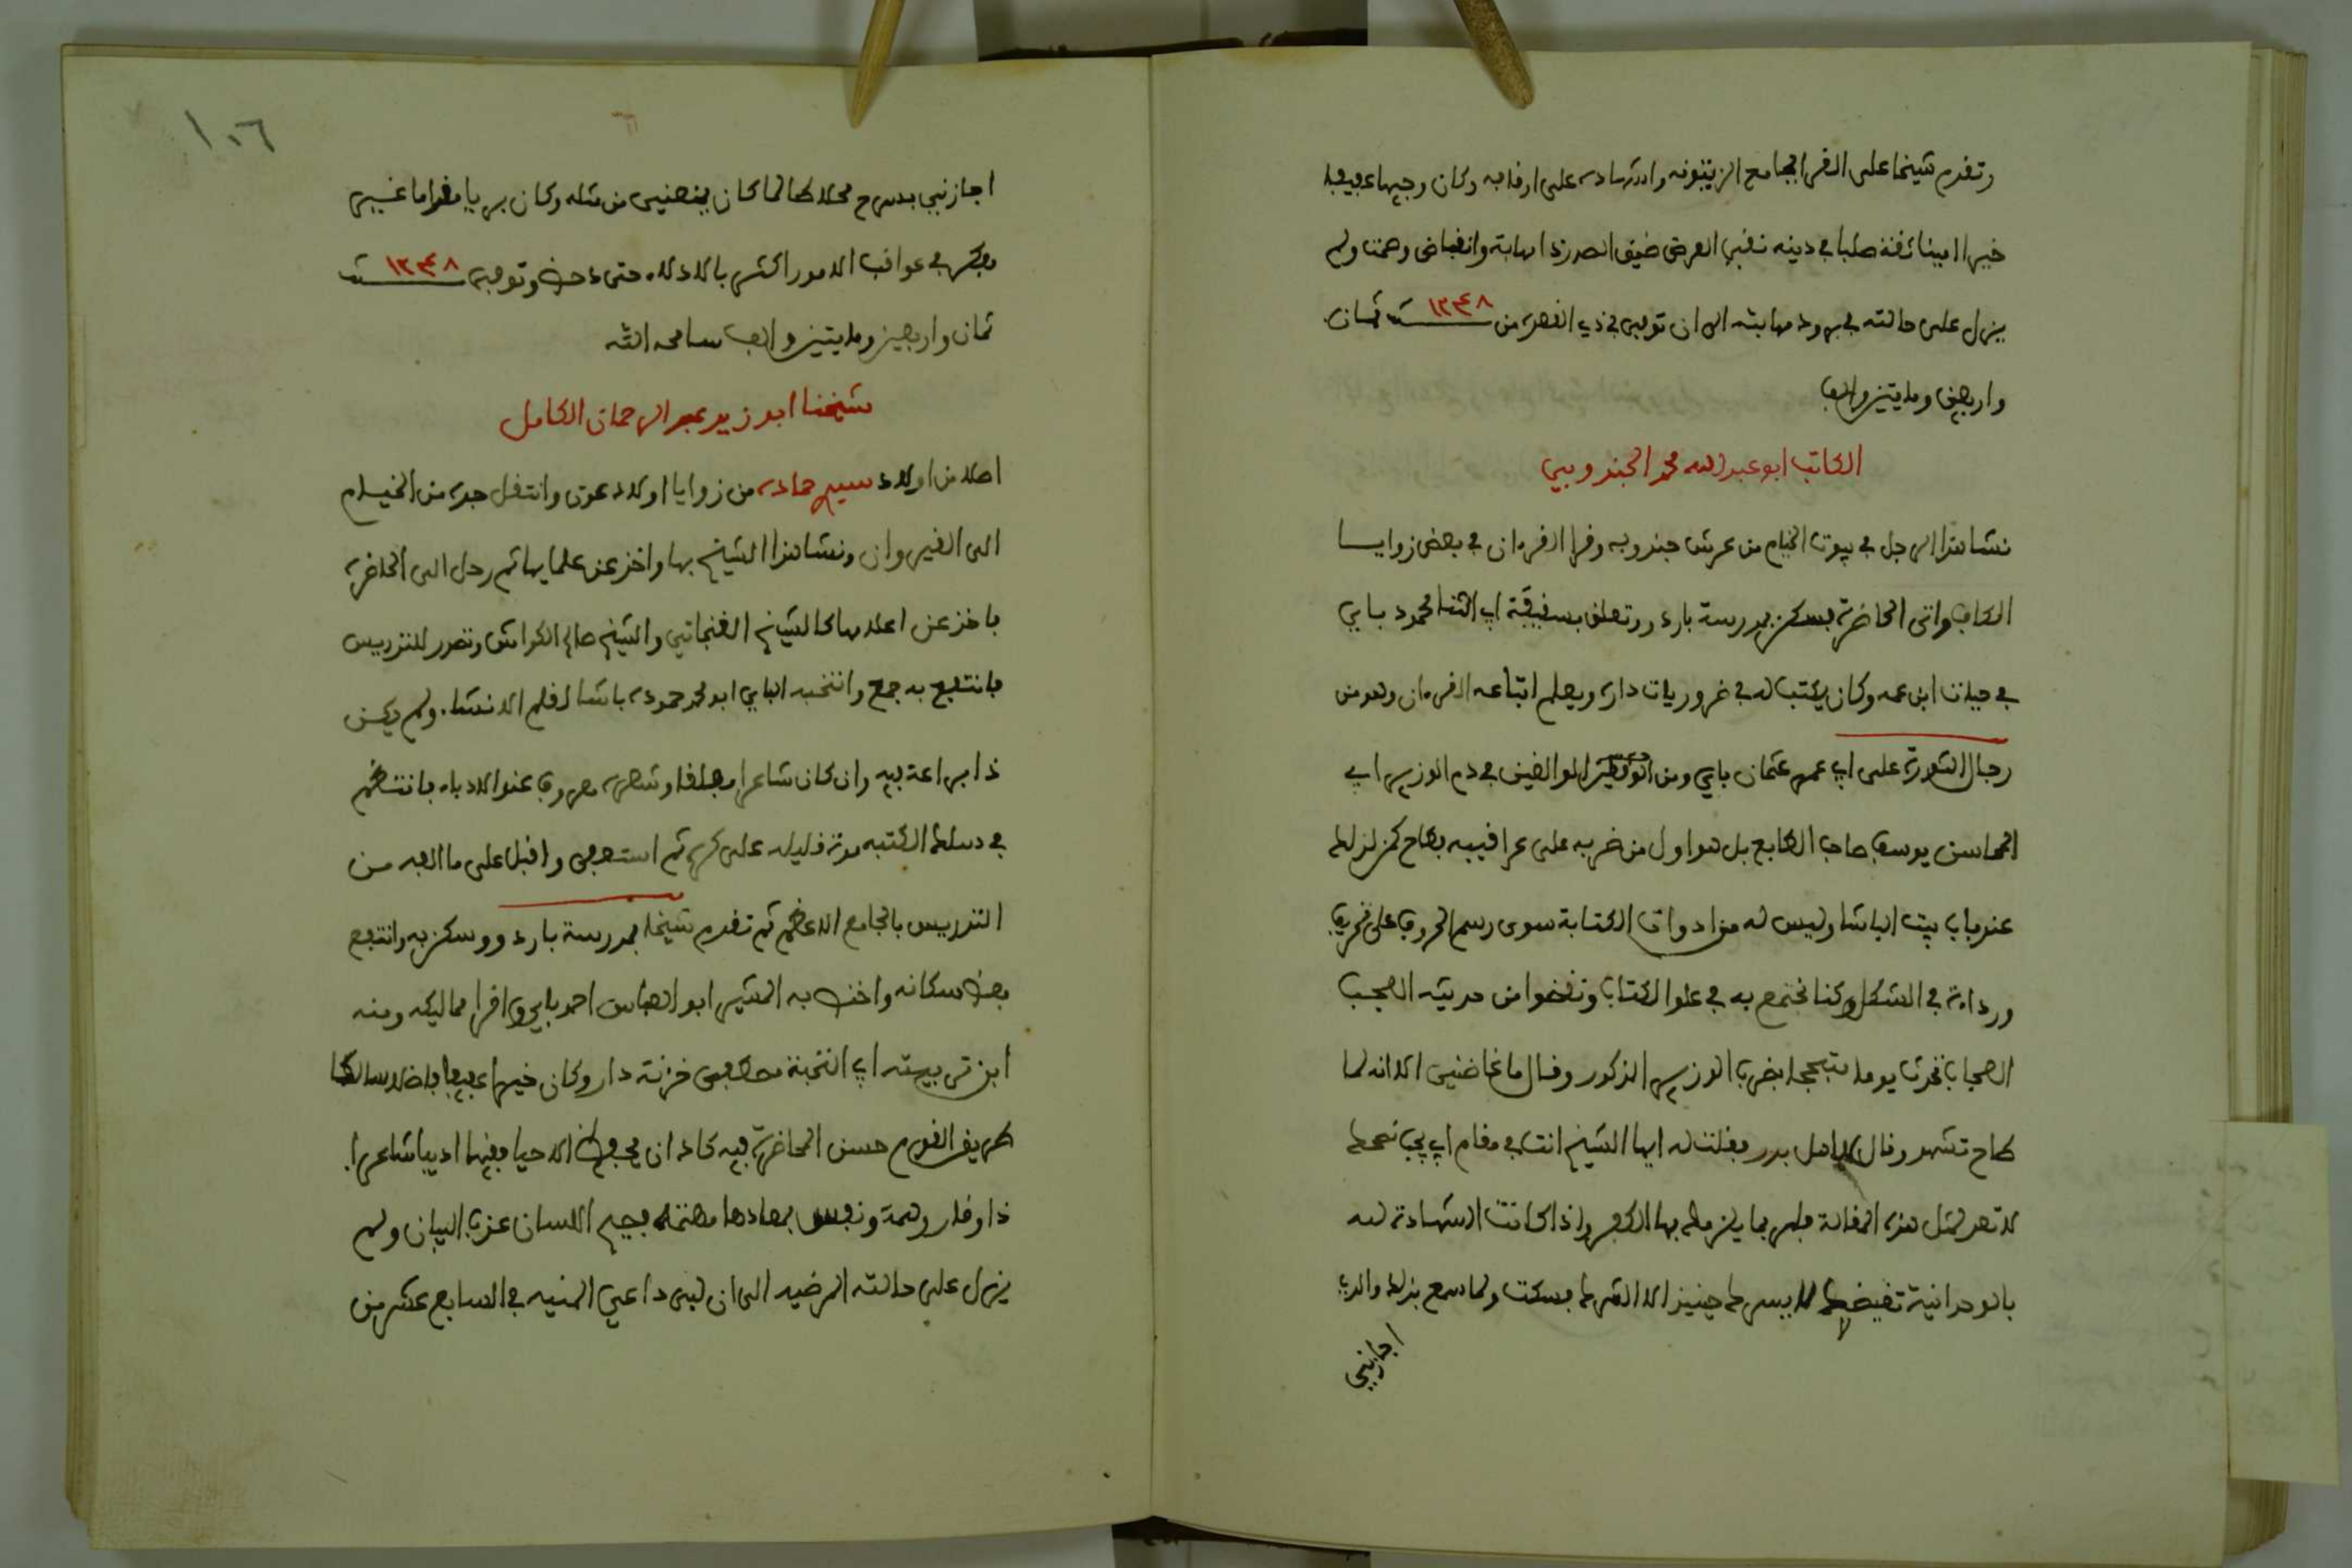 وتقدم شيخا على القراء بجامع الزيتونة وانتهاده على اترابه وكان وجيها عفيفا
خيرا امينا ثقة صلبا في دينه نقي العرض ضيق الصدر ذا مهابة وانقباض وهمة ولم
يزل على حالته في برود مهابته الى ان توفي في ذي القعدة من سنة ١٢٤٨ ثمان
واربعين ومايتين والف
الكاتب ابو عبد الله محمد الجندوبي
نشا هذا الرجل في بيوت الخيام من عرش جندوبه وقرا القرءان في بعض زوايا
الكاف واتى الحاضرة فسكن بمدرسة باردو وتعلق بسفيفة ابي الثنا محمود باي
في حيات ابن عمه وكان يكتب له في ضروريات داره ويعلم اتباعه القرءان وهو من
رجال الثورة على ابي عمرو عثمان باي ومن الموافقين في دم الوزير ابي
المحاسن يوسف صاحب الطابع بل هو اول من ضربه على عرافيبه بطاح كمن لزله
عند باب بيت الباشا وليس له من ادوات الكتابة سوى رسم الحروف على تحريف
ورداءة في الشكل وكنا نجتمع به في علو الكتاب ونخوضوا من حديثه العجب
العجاب تحدث يوما متبجحا بضرب الوزير المذكور وقال ما غاضني الا انه لما
طاح تشهد وقال يا اهل بدر فقلت له ايها الشيخ انت في مقام اب يجب نصحك
لا تعد لمثل هذه المقالة فلربما يلزمك بها الكفر واذا كانت الشهادة لله
بالوحدانية تغيضك لا يسرك حينيذ الا الشرك فسكت ولما سمع بذلك والدي
اجازني
١٠٦
٦
اجازني بمدح محلاك لما كان ينعني من مثله وكان بريا مقداما غير
مفكر في عواقب الامور اكثر بالادلاء حتى دحض وتوفي سنة ١٢٤٨
ثمان واربعين ومايتين والف سامحه الله
شيخنا ابو زيد عبد الرحمان الكامل
اصله من اولاد سيدي حمادة من زوايا اولاد عون وانتقل جده من الخيام
الى القيروان ونشا هذا الشيخ بها واخذ عن علمايها ثم رحل الى الحاضرة
فاخذ عن اعلامها كالشيخ الغنجاتي والشيخ صالح الكواش وتصدر للتدريس
فانتفع به جمع وانتخبه الباي ابو محمد حموده باشا لقلم الانشاء ولم يكن
ذا براعة فيه وان كان شاعرا مفلقا وشعره معروف عند الادباء فانتظم
في سلك الكتبه مدة قليله على كره ثم استعفى واقبل على ما الفه من
التدريس بالجامع الاعظم ثم تقدم شيخا بمدرسة باردو وسكن به وانتفع
بعض سكانه واختص به المشير ابو العباس احمد باي واقرا مماليكه ومنه
ابن تربيته ابي النخبة مصطفى خزنة دار وكان خيرا عفيفا فاضلا سالكا
طريق القوم حسن المحاضرة فيه كاد ان يحفظ الاحيا فقيها اديبا شاعرا
ذا وقار وهمة ونفس بمعادها مهتمة فصيح اللسان عذب البيان ولم
يزل على حالته المرضيه الى ان لبى داعي المنيه في السابع عشر من